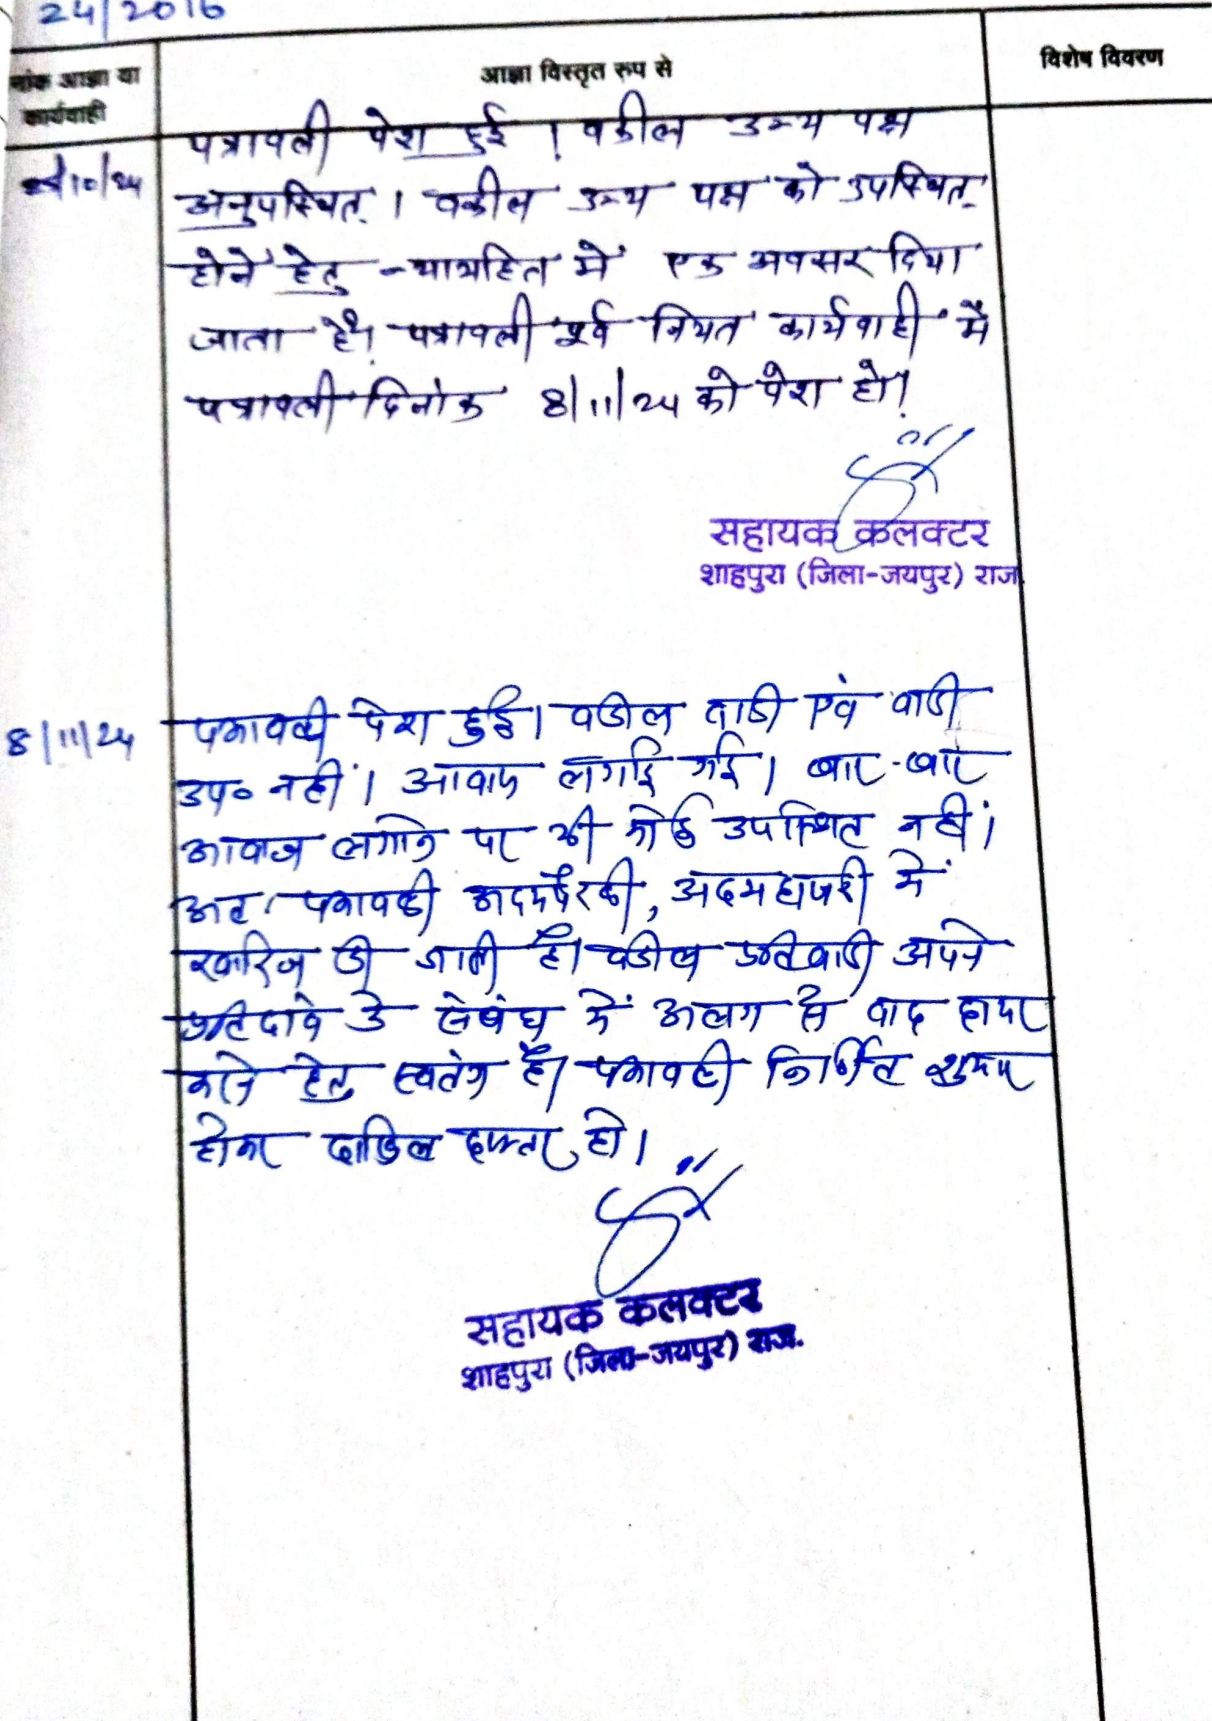 24/2016
नांक आज्ञा या
कार्यवाही
आज्ञा विस्तृत रुप से
विशेष विवरण
पत्रावली पेश हुई । वकील उभय पक्ष
/10/24
अनुपस्थित । वकील उभय पक्ष को उपस्थित
होने हेतु न्यायहित में एक अवसर दिया
जाता है। पत्रावली पूर्व नियत कार्यवाही में
पत्रावली दिनांक 8/11/24 को पेश हो।
सहायक कलक्टर
शाहपुरा (जिला-जयपुर) राज.
8/11/24
पत्रावली पेश हुई। वकील वादी एवं वादी
उप० नहीं। आवाज लगाई गई। बार-बार
आवाज लगाने पर भी कोई उपस्थित नहीं।
अतः पत्रावली अदमपैरवी, अदमहाजरी में
खारिज की जाती है। वकील प्रतिवादी अपने
प्रतिदावे के संबंध में अलग से वाद दायर
करने हेतु स्वतंत्र है। पत्रावली निर्णित शुमार
होकर दाखिल दफ्तर हो।
सहायक कलक्टर
शाहपुरा (जिला-जयपुर) राज.